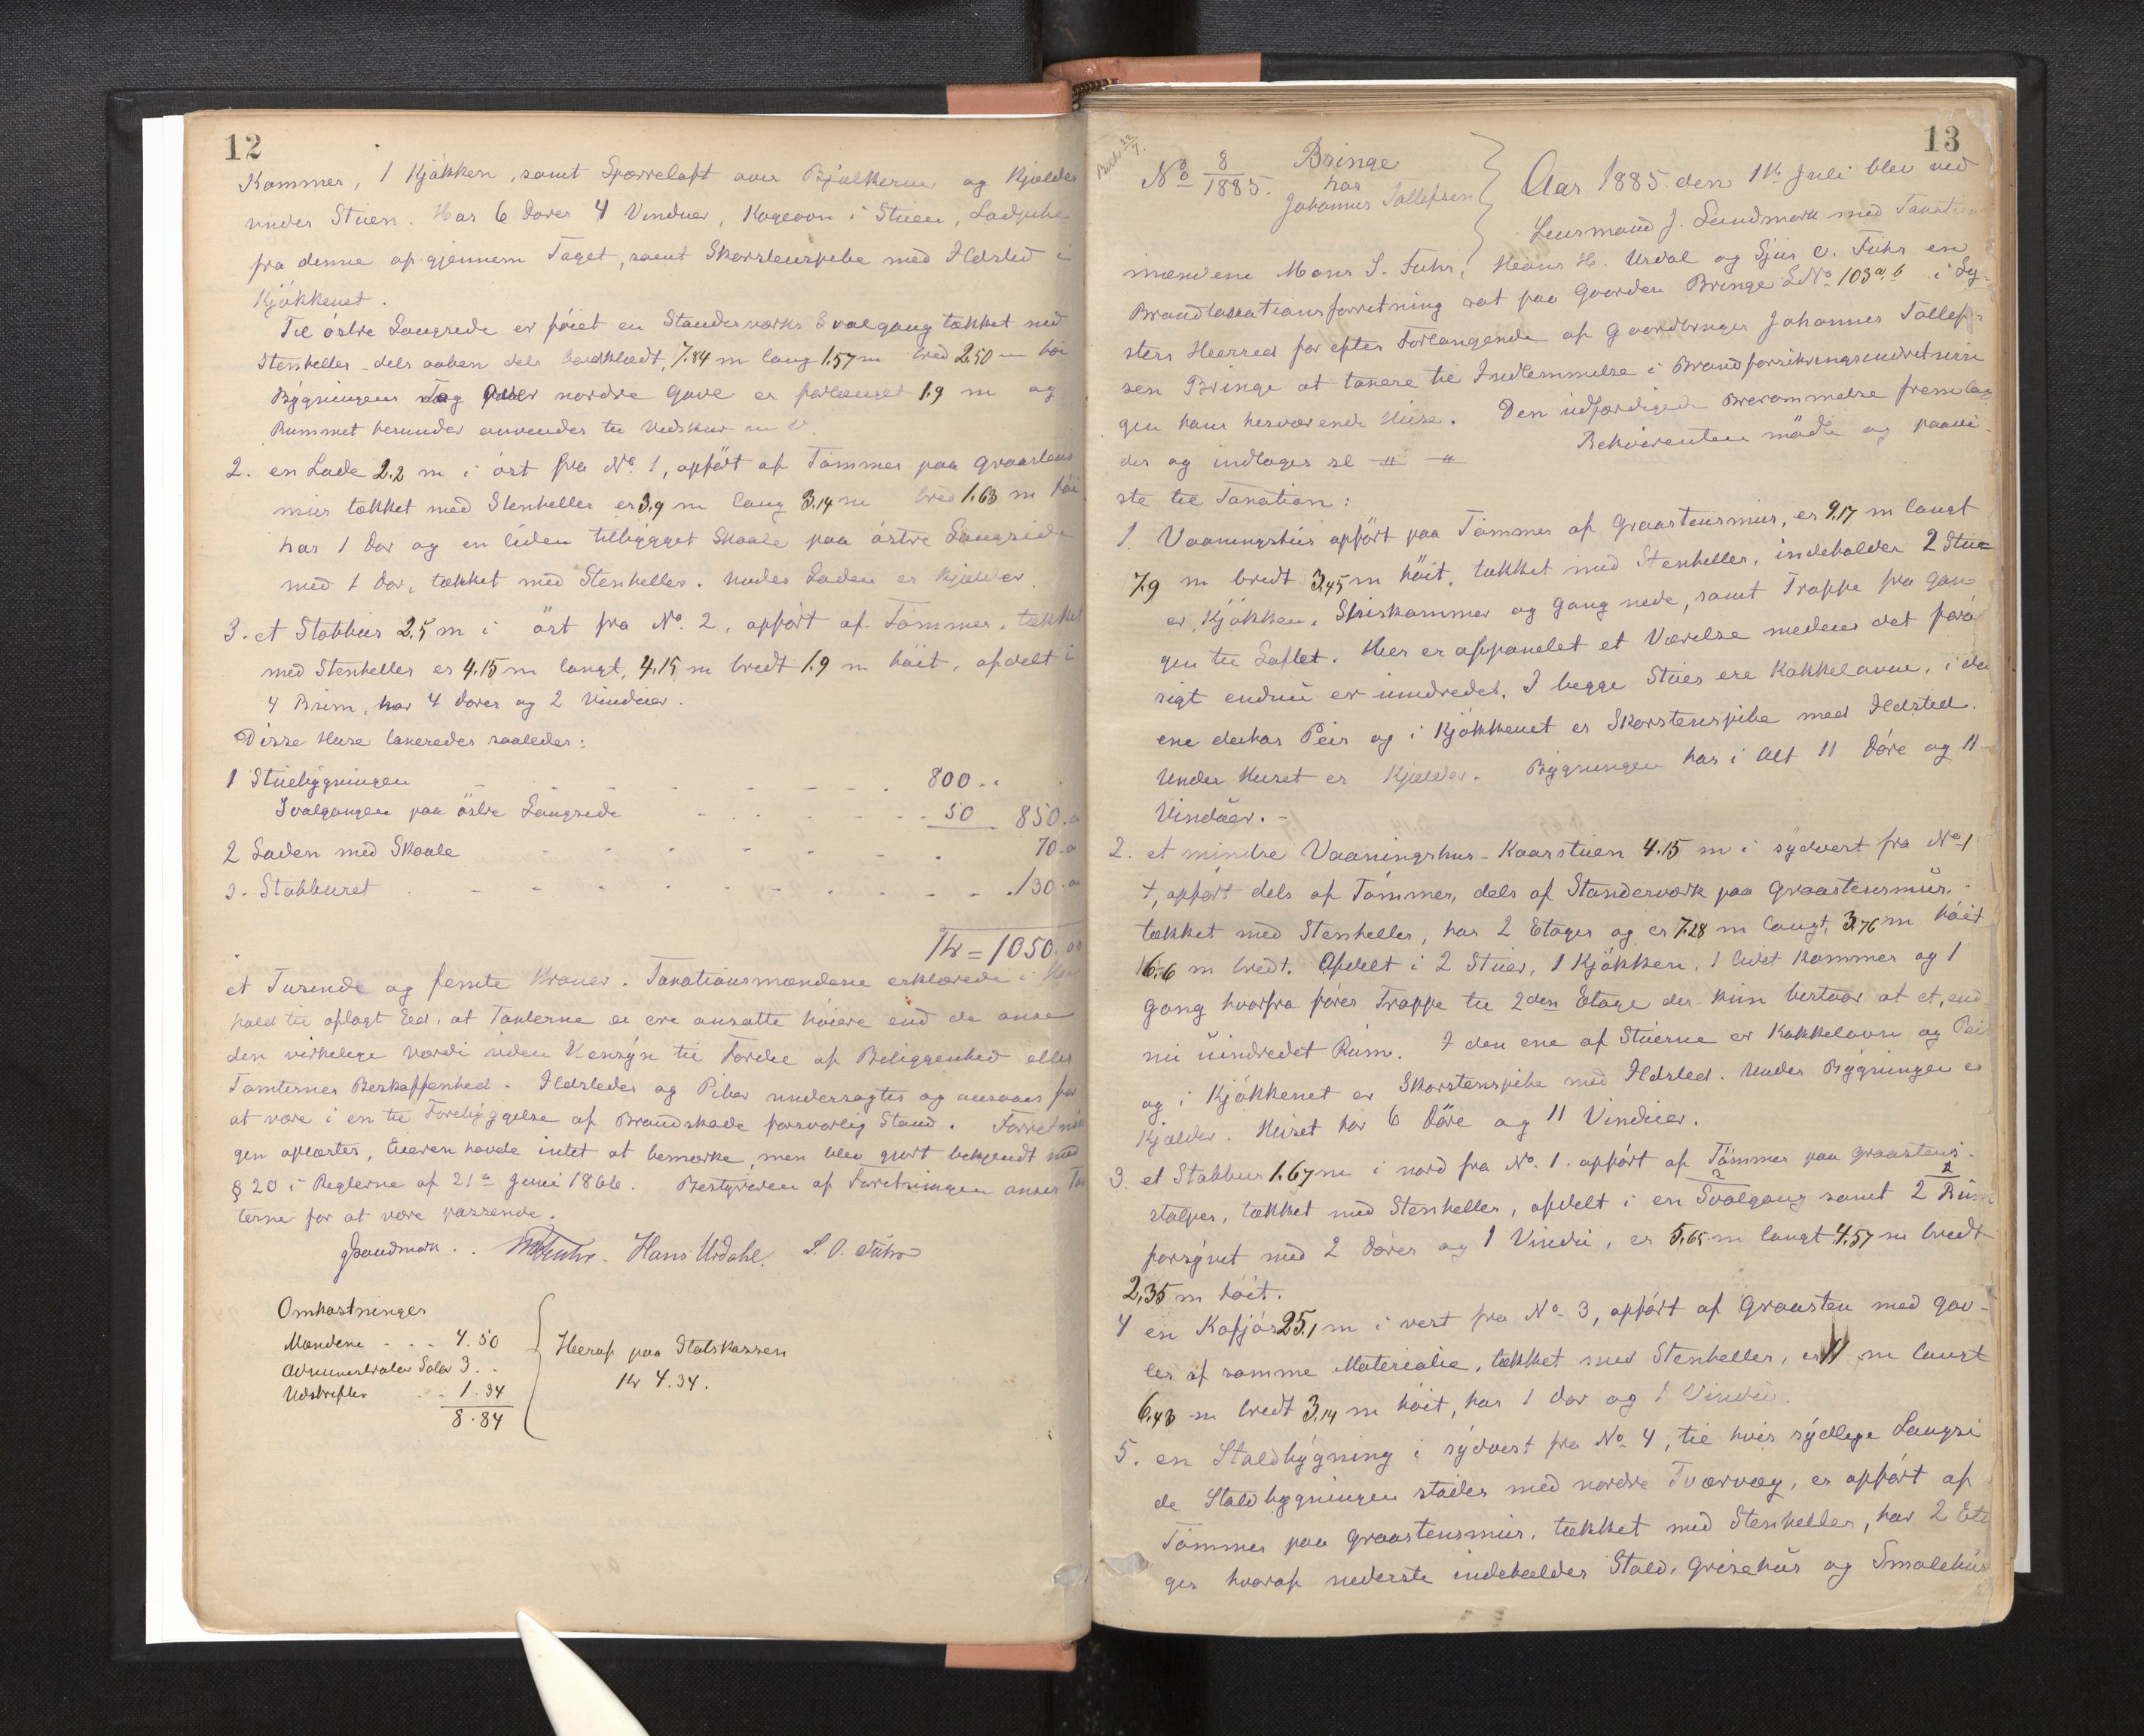 12
Kammer, 1 Kjøkken, samt Sperreloft over Bjælkerne og Kjelder
under Stuen. Har 6 Døre 4 Vinduer, Kogeovn i Stuen, Ladpibe
fra denne op gjennem Taget, samt Skorstenspibe med Ildsted i
Kjøkkenet.
Til østre Langside er føiet en Standerværks Svalgang tækket med
Stenheller dels aaben dels bordklædt, 7.84 m lang 1.57 m bred 2.50 m høi
Bygningens Tag over nordre Gavl er forlænget 1.9 m og
Rummet herunder anvendes til Vedskur m V.
2. en Lade 2.2 m i øst fra No 1, opført af Tømmer paa Graastens
mur tækket med Stenheller er 3.9 m lang 3.14 m bred 1.63 m høi
har 1 Dør og en liden tilbygget Skaale paa østre Langside
med 1 Dør, tækket med Stenheller. Under Laden er Kjelder.
3. et Stabbur 2.5 m i øst fra No. 2, opført af Tømmer, tækket
med Stenheller er 4.15 m langt, 4.15 m bredt 1.9 m høit, afdelt i
4 Rum, har 4 Døre og 2 Vinduer.
Disse Huse taxeredes saaledes:
1 Stuebygningen 800 . .
Svalgangen paa østre Langside 50 850.00
2 Laden med Skaale 70.00
3. Stabburet 130.00
Kr = 1050.00
et Tusende og femti Kroner. Taxationsmændene erklærede i Hen
hold til aflagt Ed, at Taxterne ei ere ansatte høiere end de anse
den virkelige Værdi uden Hensyn til Fordel af Beliggenhed eller
Tomternes Beskaffenhed. Ildsteder og Piber undersøgtes og ansaaes for
at være i en til Forebyggelse af Brandskade forsvarlig Stand. Forretnin
gen oplæstes, Eieren havde intet at bemærke, men blev gjort bekjendt med
§ 20 i Reglerne af 21de Juni 1866. Bestyreren af Forretningen anser Tax
terne for at være passende.
J Sandmark . . Hans Urdahl. S. O. Fuhr
Omkostninger
Mændene . . . 4.50
Administrator Salær 3 . .
Udskrifter . . 1.34
8.84
Heraf paa Statskassen
Kr 4.34.
13
No 8/1885. Bringe
hos
Johannes Tollefsen
Aar 1885 den 1ste Juli blev ved
Lensmand J. Sandmark med Taxations
mændene Mons S. Fuhr, Hans H. Urdal og Sjur O. Fuhr en
Brandtaxationsforretning sat paa Gaarden Bringe LNo 103 a, b i Ly-
sters Herred for efter Forlangende af Gaardbruger Johannes Tollef-
sen Bringe at taxere til Indlemmelse i Brandforsikringsindretnin
gen hans herværende Huse. Den udfærdigede Berammelse fremlag
des og indtages sl — " — " Rekvirenten mødte og paavi-
ste til Taxation:
1. Vaaningshus opført paa Tømmer af Graastensmur, er 9.17 m langt
7.9 m bredt 3.45 m høit, tækket med Stenheller, indeholder 2 Stu=
er, Kjøkken, Spiskammer og Gang nede, samt Trappe fra Gan
gen til Loftet. Her er afpanelet et Værelse medens det førø
rigt endnu er uindredet. I begge Stuer ere Kakkelovne, i den
ene desuden Peis og i Kjøkkenet er Skorstenspibe med Ildsted.
Under Huset er Kjelder. Bygningen har i Alt 11 Døre og 11
Vinduer. -
2. et mindre Vaaningshus - Kaarstuen 4.15 m i sydvest fra No 1
+, opført dels af Tømmer, dels af Standerværk paa Graastensmur,
tækket med Stenheller, har 2 Etager og er 7.28 m langt, 3.76 m høit
6.6 m bredt. Afdelt i 2 Stuer, 1 Kjøkken, 1 lidet Kammer og 1
Gang hvorfra fører Trappe til 2den Etage der kun bestaar af et, end-
nu uindredet Rum. I den ene af Stuerne er Kakkelovn og Peis
og i Kjøkkenet er Skorstenspibe med Ildsted. Under Bygningen er
Kjelder. Huset har 6 Døre og 11 Vinduer.
3. et Stabbur 1.67 m i nord fra No. 1. opført af Tømmer paa Graastens-
stolper, tækket med Stenheller, afdelt i en Svalgang samt 2 Rum
forsynet med 2 Døre og 1 Vindu, er 5.65 m langt 4.57 m bredt
2,35 m høit.
4 en Kofjøs 25.1 m i vest fra No. 3, opført af Graasten med Gav-
ler af samme Materiale, tækket med Stenheller, er 11 m langt
6.43 m bredt 3.14 m høit, har 1 Dør og 1 Vindu.
5. en Staldbygning i sydvest fra No 4, til hvis sydlige Langsi
de Staldbygningen støder med nordre Tværvæg, er opført af
Tømmer paa Graastensmur, tækket med Stenheller, har 2 Eta
ger hvoraf nederste indeholder Stald, Grisehus og Smalehus